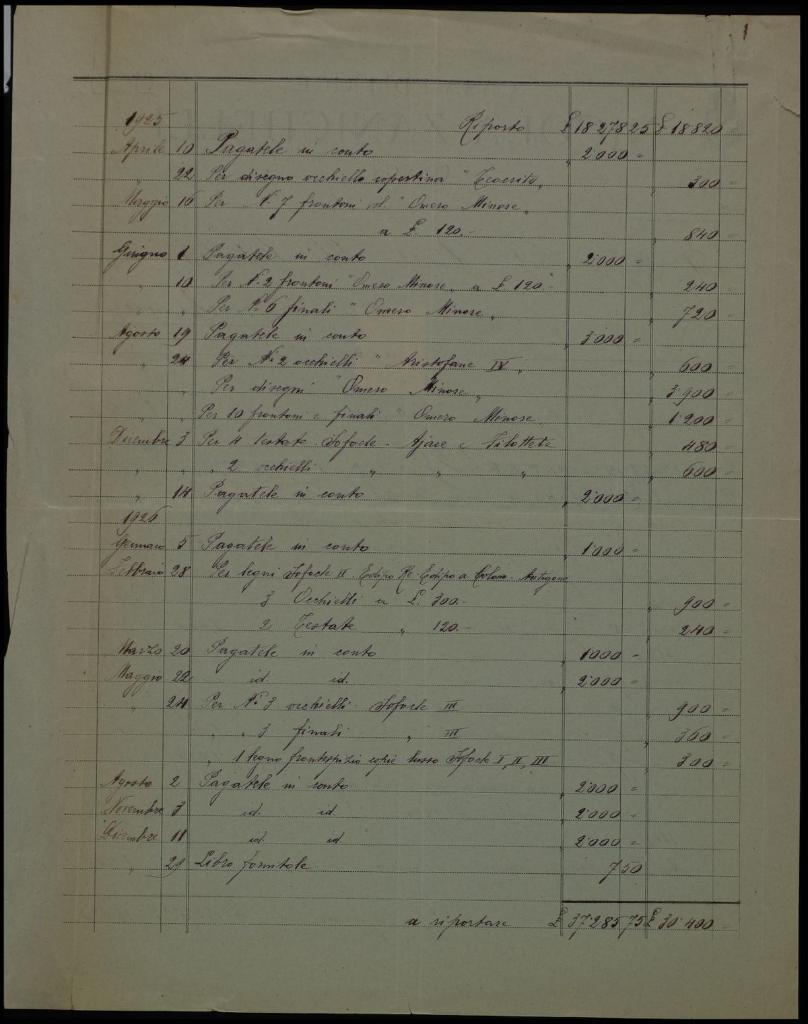 1925 Riporto £ 18278 25 £ 18820 -
Aprile 10 Pagatele in conto " 2'000 =
" 22 Per disegno occhiello copertina "Teocrito" " 300 =
Maggio 16 Per N. 7 frontoni d. "Omero Minore"
a £ 120.- " 840 =
Giugno 1 Pagatele in conto " 2'000 =
" 10 Per N. 2 frontoni "Omero Minore" a £ 120 - " 240 =
" " Per N. 6 finali "Omero Minore" " 720 =
Agosto 19 Pagatele in conto " 3'000 =
" 24 Per N. 2 occhielli "Aristofane IV" " 600 =
" Per disegni "Omero Minore" " 3'900 =
" Per 10 frontoni e finali "Omero Minore" " 1'200 =
Dicembre 3 Per 4 testate Sofocle - Ajace e Filottete " 480 =
" " " 2 occhielli " " " " 600 =
" 14 Pagatele in conto " 2'000 =
1926
Gennaio 5 Pagatele in conto " 1'000 =
Febbraio 28 Per legni Sofocle II. Edipo Re - Edipo a Colono - Antigone
3 Occhielli a £. 300.- " 900 =
2 Testate " 120.- " 240 =
Marzo 20 Pagatele in conto " 1'000 =
Maggio 22 id. id. " 2'000 =
" 24 Per N. 3 occhielli Sofocle III " 900 =
" 3 finali " III " 360 =
" 1 legno frontespizio copie lusso Sofocle I, II, III " 300 =
Agosto 2 Pagatele in conto " 2'000 =
Novembre 3 id. id. " 2'000 =
Dicembre 11 id. id. " 2'000 =
" 29 Libro fornitole 7 50
a riportare £ 37'285 75 £ 30'400 =